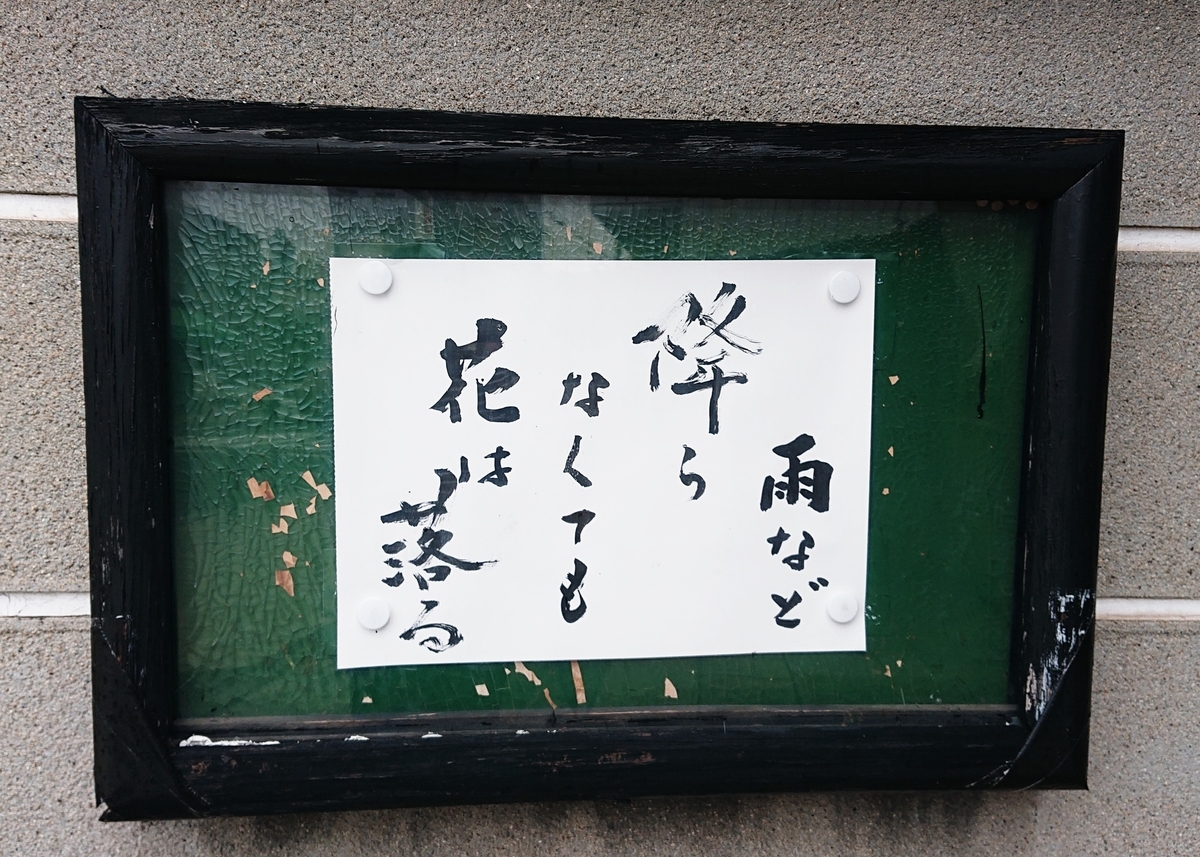 雨など
降ら
なくても
花は
落る